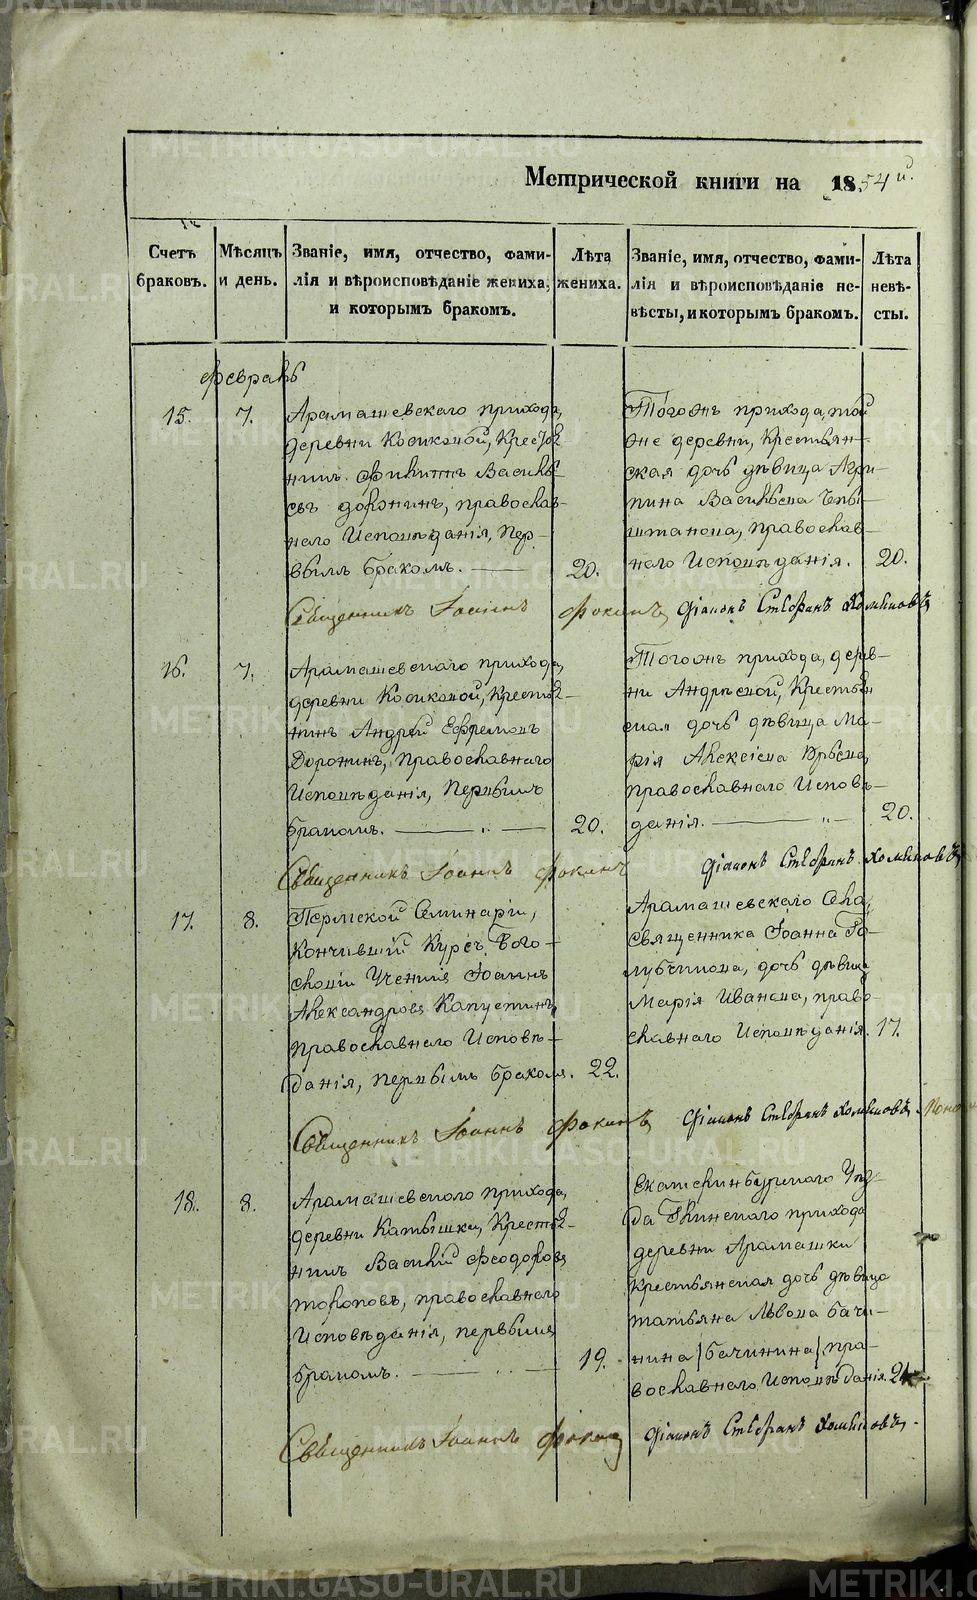 Метрической книги на 1854й.
Счетъ браковъ.
Мѣсяцъ и день.
Званіе, имя, отчество, фами-
лія и вѣроисповѣданіе жениха,
и которымъ бракомъ.
Лѣта жениха.
Званіе, имя, отчество, фами-
лія и вѣроисповѣданіе не-
вѣсты, и которымъ бракомъ.
Лѣта невѣ-
сты.
Февраль
15. 7.
Арамашевскаго прихода,
деревни Косиковой, Кресть-
нинъ Филиппъ Василь-
евъ Доронинъ, православ-
наго Исповѣданія, Пер-
вымъ бракомъ. 20.
Тогожъ прихода, той
же деревни, Крестьян-
ская дочь дѣвица Агри-
пина Васильева
православ-
наго Исповѣданія. 20.
Священникъ Іоаннъ Фокинъ, Діаконъ Стефанъ Хомяковъ
16. 7.
Арамашевскаго прихода,
деревни Косиковой, Кресть-
нинъ Андрей Ефремовъ
Доронинъ, Православнаго
Исповѣданія, Первымъ
бракомъ. 20.
Тогожъ прихода, дерев-
ни Андрѣевой, Крестьян
ская дочь дѣвица Ма-
рія Алексіева Юрьева,
православнаго Исповѣ-
данія. 20.
Священникъ Іоаннъ Фокинъ Діаконъ Стефанъ Хомяковъ
17. 8.
Пермской Семинаріи,
Кончившій Курсъ Бого-
словія Ученія Іоаннъ
Александровъ Капустинъ,
Православнаго Исповѣ-
данія, первымъ бракомъ. 22.
Арамашевскаго Села,
Священника Іоанна Го-
лубчикова, дочь дѣвица
Марія Иванова, право-
славнаго Исповѣданія. 17.
Священникъ Іоаннъ Фокинъ, Діаконъ Стефанъ Хомяковъ,
18. 8.
Арамашевскаго прихода,
деревни Катышки, Кресть-
нинъ Василій Феодоровъ
Тороповъ, православнаго
Исповѣданія, первымъ
бракомъ. 19.
Екатеринбургскаго Уѣз-
да прихода
деревни Арамашки
Крестьянская дочь дѣвица
Татьяна Львова Бачи-
нина /Бачинина/ пра-
вославнаго Исповѣданія. 21
Священникъ Іоаннъ Фокинъ Діаконъ Стефанъ Хомяковъ,
METRIKI.GASO-URAL.RU